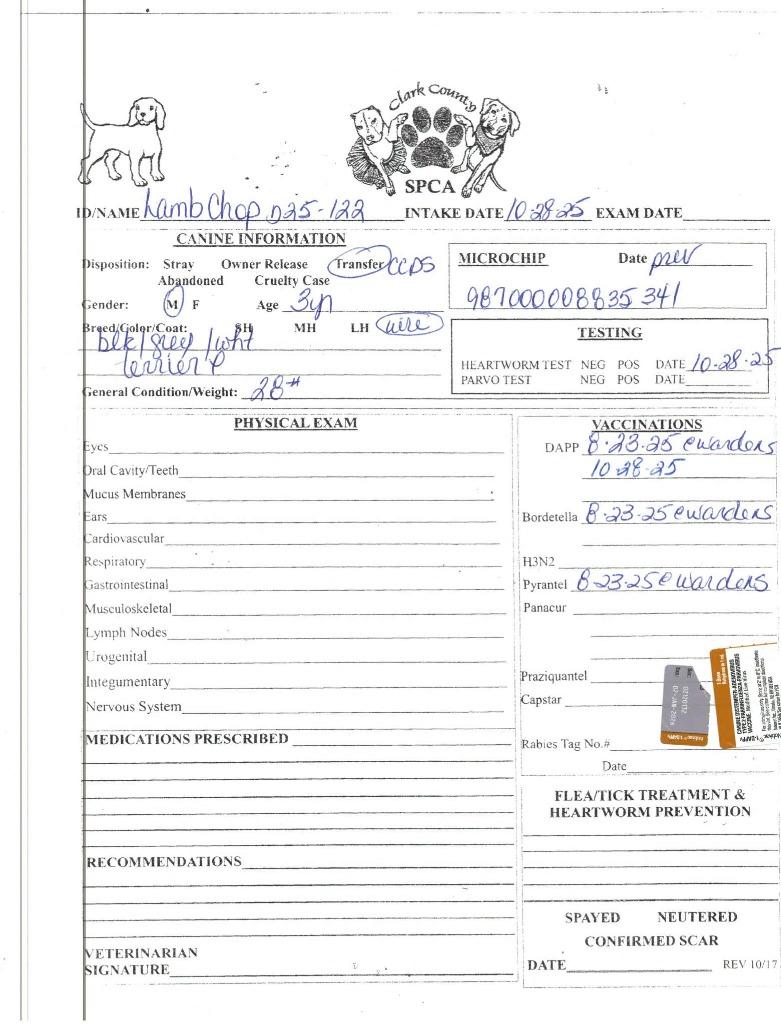 Clark County
SPCA
ID/NAME Lamb Chop D25-122 INTAKE DATE 10-28-25 EXAM DATE
CANINE INFORMATION
Disposition: Stray Owner Release Transfer CCDS
Abandoned Cruelty Case
Gender: M F Age 3yr
Breed/Color/Coat: SH MH LH wire
blk/grey/wht
terrier
General Condition/Weight: 28#
MICROCHIP Date prev
987000008835341
TESTING
HEARTWORM TEST NEG POS DATE 10-28-25
PARVO TEST NEG POS DATE
PHYSICAL EXAM
Eyes
Oral Cavity/Teeth
Mucus Membranes
Ears
Cardiovascular
Respiratory
Gastrointestinal
Musculoskeletal
Lymph Nodes
Urogenital
Integumentary
Nervous System
MEDICATIONS PRESCRIBED
RECOMMENDATIONS
VETERINARIAN
SIGNATURE
VACCINATIONS
DAPP 8-23-25 @ wardens
10-28-25
Bordetella 8-23-25 @ wardens
H3N2
Pyrantel 8-23-25 @ wardens
Panacur
Praziquantel
Capstar
Rabies Tag No.#
Date
FLEA/TICK TREATMENT &
HEARTWORM PREVENTION
SPAYED NEUTERED
CONFIRMED SCAR
DATE REV 10/17